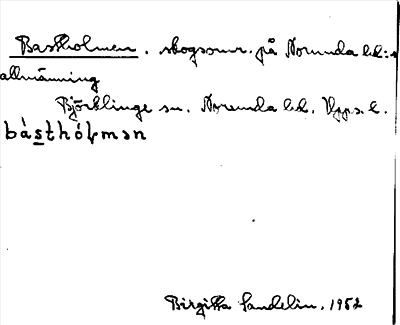 Bastholmen. skogsomr. på Norunda hd:s
allmänning
Björklinge sn. Norunda hd. Upps. l.
bàsthólmən
Birgitta Sandelin. 1952